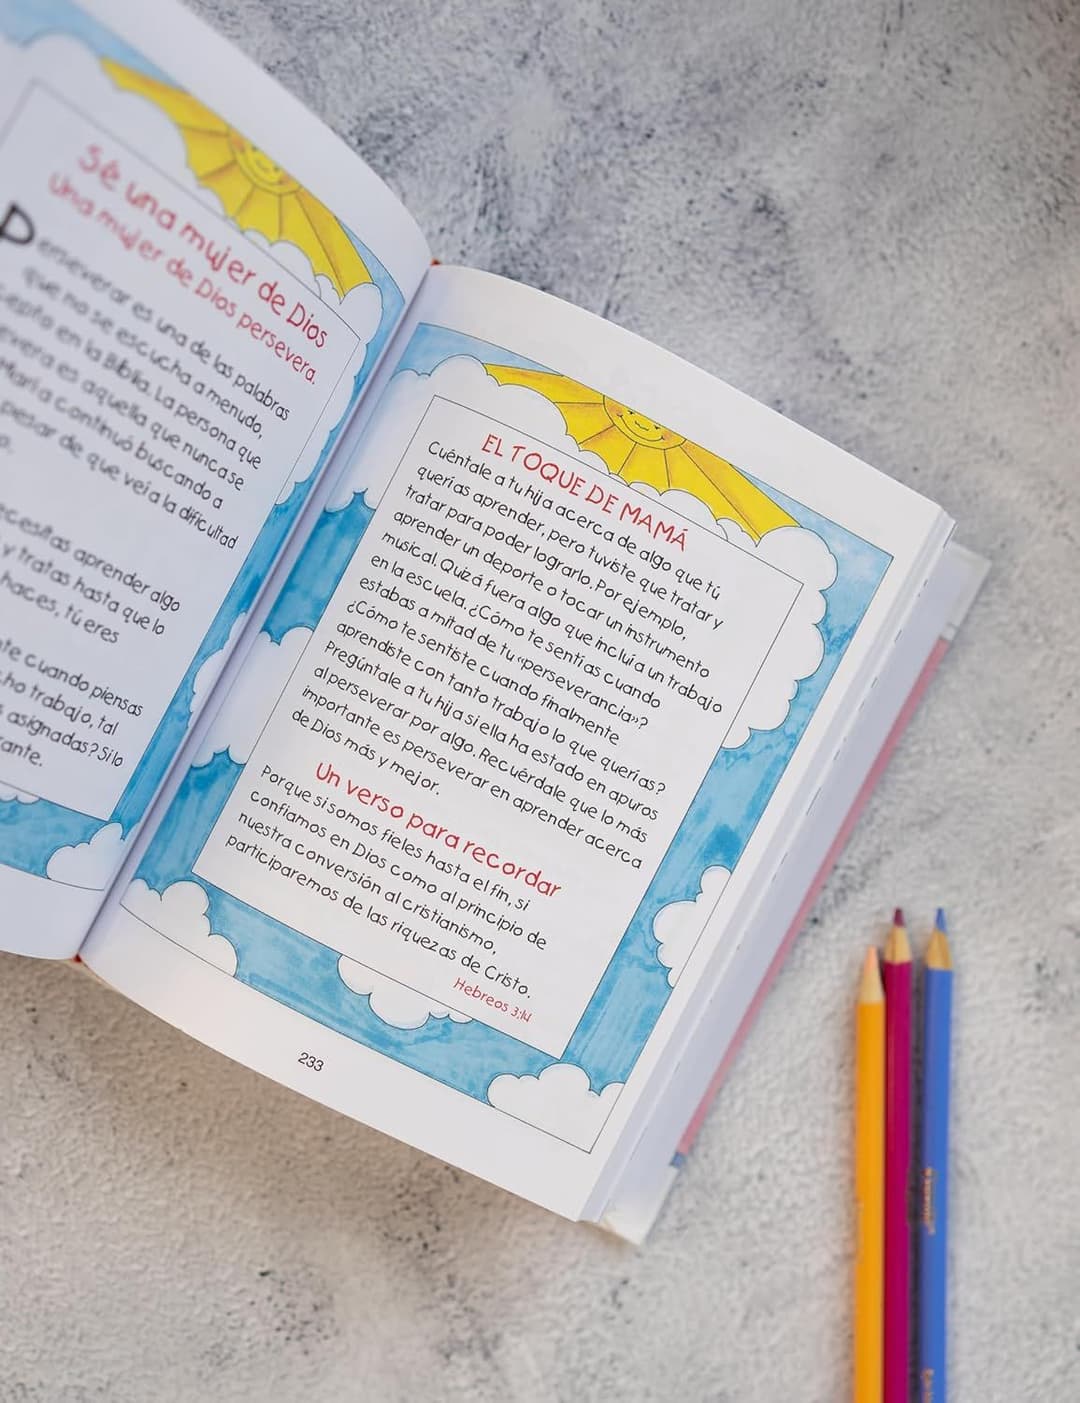 Sé una mujer de Dios
Una mujer de Dios persevera.
Perseverar es una de las palabras
que no se escucha a menudo,
en la Biblia. La persona que
es aquella que nunca se
María continuó buscando a
pesar de que veía la dificultad
aprender algo
y tratas hasta que lo
haces, tú eres
cuando piensas
trabajo, tal
asignadas? Si lo
EL TOQUE DE MAMÁ
Cuéntale a tu hija acerca de algo que tú
querías aprender, pero tuviste que tratar y
tratar para poder lograrlo. Por ejemplo,
aprender un deporte o tocar un instrumento
musical. Quizá fuera algo que incluía un trabajo
en la escuela. ¿Cómo te sentías cuando
estabas a mitad de tu «perseverancia»?
¿Cómo te sentiste cuando finalmente
aprendiste con tanto trabajo lo que querías?
Pregúntale a tu hija si ella ha estado en apuros
al perseverar por algo. Recuérdale que lo más
importante es perseverar en aprender acerca
de Dios más y mejor.
Un verso para recordar
Porque si somos fieles hasta el fin, si
confiamos en Dios como al principio de
nuestra conversión al cristianismo,
participaremos de las riquezas de Cristo.
Hebreos 3:14
233